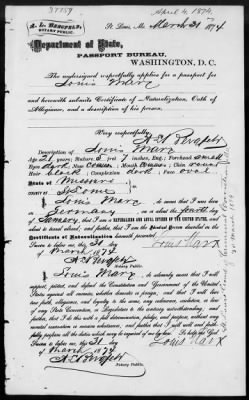 37759
April 4, 1874.
A. L. BERGFELD
NOTARY PUBLIC.
St Louis, Mo March 31 1874
Department of State,
PASSPORT BUREAU,
WASHINGTON, D. C.
The undersigned respectfully applies for a passport for
Louis Marx
and herewith submits Certificate of Naturalization, Oath of
Allegiance, and a description of his person.
Very respectfully,
Description of Louis Marx
Age 21 years Stature 5 7 inches, Eng.; Forehead small
Eyes Nose Mouth Chin round
Hair black Complexion dark Face oval
State of Missouri
COUNTY OF St Louis
Louis Marx, do swear that I was born in
Germany on the fourth day of
January, that I am a NATURALIZED AND LOYAL CITIZEN OF THE UNITED STATES, and about
to travel abroad; and further, that I am the identical Person described in the
Certificate of Naturalization herewith presented.
Sworn to before me, this 31 day
of March 1874
Louis Marx
Notary Public.
I, Louis Marx, do solemnly swear that I will
support, protect, and defend the Constitution and Government of the United
States against all enemies, whether domestic or foreign; and that I will bear
true faith, allegiance, and loyalty to the same, any ordinance, resolution, or law
of any State Convention, or Legislature to the contrary notwithstanding; and
further, that I do this with a full determination, pledge, and purpose, without any
mental reservation or evasion whatsoever; and further that I will well and faithfully
perform all the duties which may be required of me by law. So help me God.
Sworn to before me, this 31 day
of March 1874
Louis Marx
Notary Public.